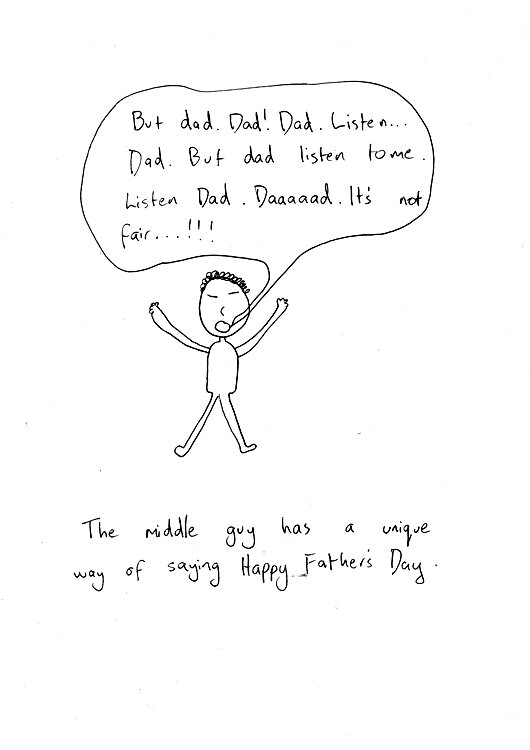 But dad. Dad! Dad. Listen...
Dad. But dad listen to me.
Listen Dad. Daaaaad. It's not
fair...!!!
The middle guy has a unique
way of saying Happy Father's Day.